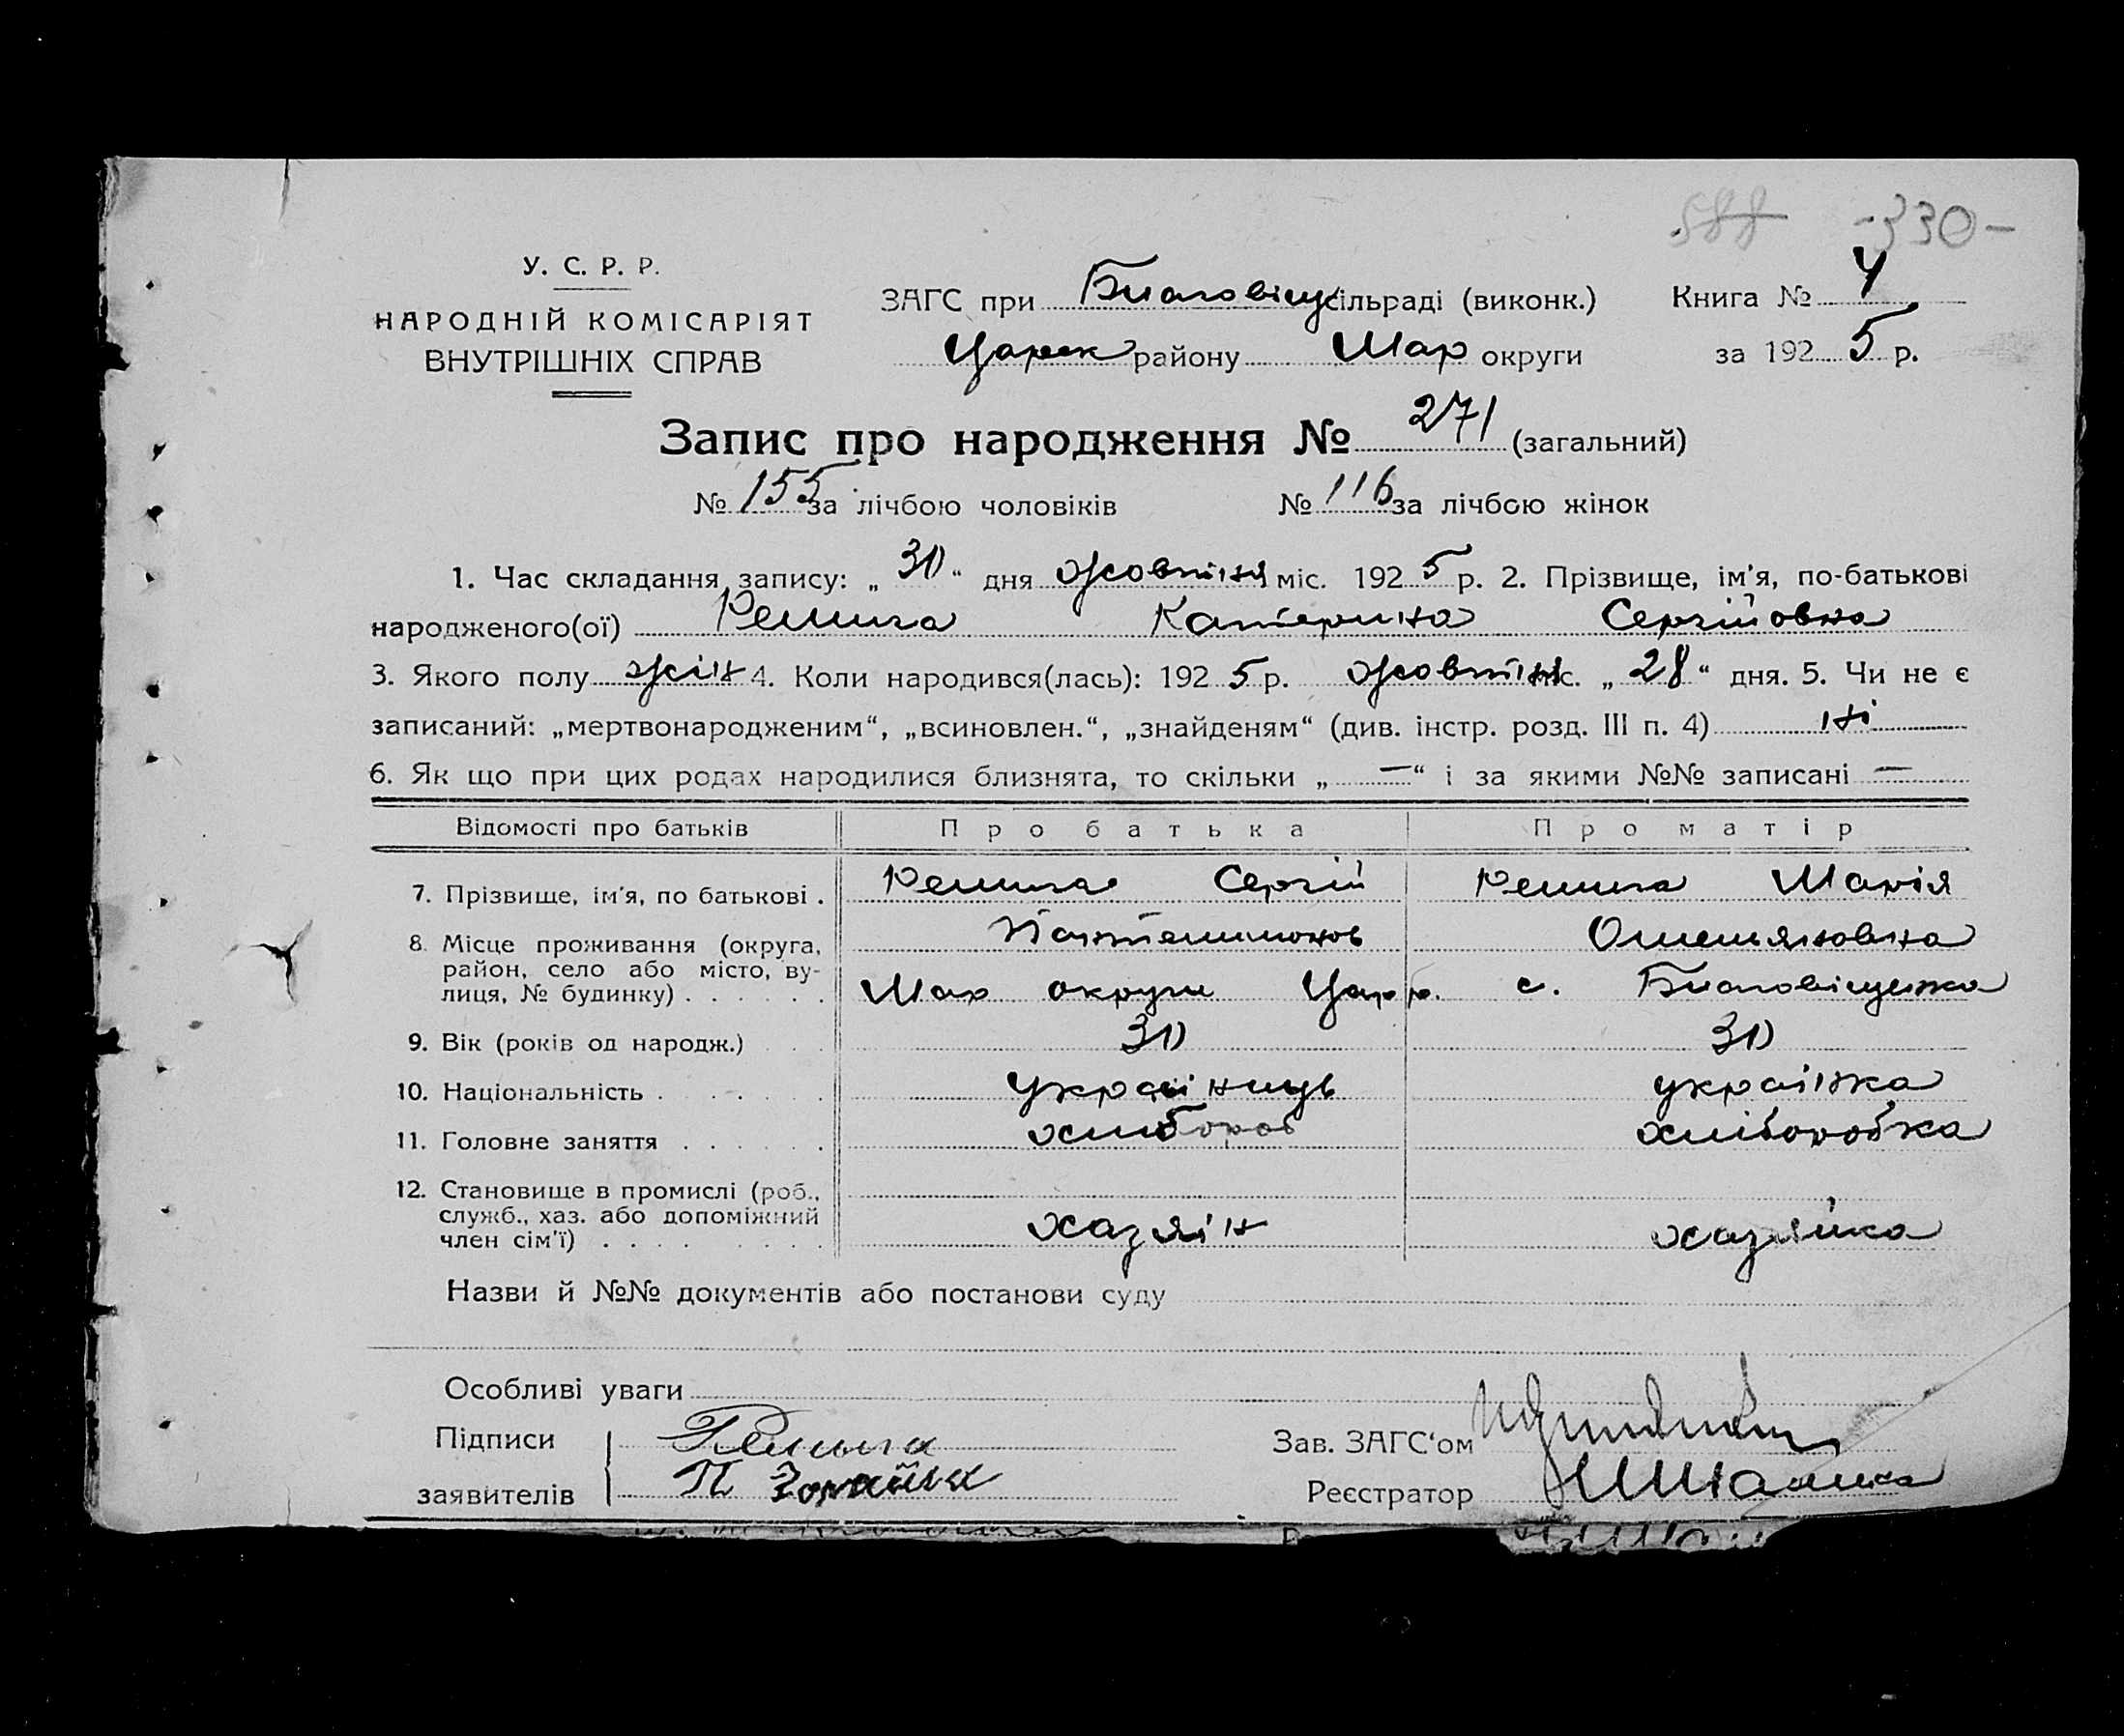 588 -330-
У. С. Р. Р.
НАРОДНІЙ КОМІСАРІЯТ
ВНУТРІШНІХ СПРАВ
ЗАГС при Благовіщ сільраді (виконк.) Книга № 4
Царек району Мар округи за 1925 р.
Запис про народження № 271 (загальний)
№ 155 за лічбою чоловіків № 116 за лічбою жінок
1. Час складання запису: „30“ дня жовтня міс. 1925 р. 2. Прізвище, ім'я, по-батькові
народженого(ої) Ремига Катерина Сергійовна
3. Якого полу жін 4. Коли народився(лась): 1925 р. жовтня міс. „28“ дня. 5. Чи не є
записаний: „мертвонародженим“, „всиновлен.“, „знайденям“ (див. інстр. розд. III п. 4) ні
6. Як що при цих родах народилися близнята, то скільки „—“ і за якими №№ записані —
Відомості про батьків Про батька Про матір
7. Прізвище, ім'я, по батькові . Ремига Сергій Ремига Марія
Пантелимонов Омеляновна
8. Місце проживання (округа,
район, село або місто, ву-
лиця, № будинку) . . . . . . Мар округи Цар р. с. Благовіщенка
9. Вік (років од народж.) 30 30
10. Національність . . . . . . українць українка
11. Головне заняття . . . . . . хлибороб хліборобка
12. Становище в промислі (роб.,
служб., хаз. або допоміжний
член сім'ї) . . . . . . . . хазяїн хазяйка
Назви й №№ документів або постанови суду
Особливі уваги
Підписи Ремыга Зав. ЗАГС'ом
заявителів П Реєстратор